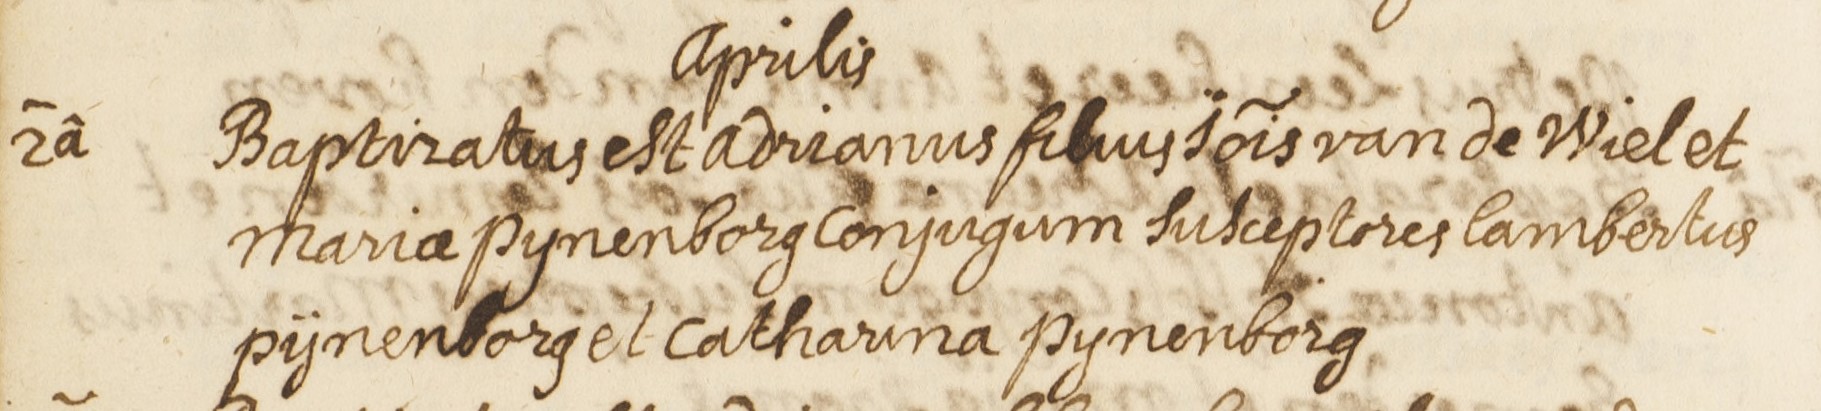 Aprilis
2a Baptizatus est Adrianus filius Jois van de Wiel et
Mariæ Pynenborg Conjugum Susceptores lambertus
pijnenborg et Catharina Pynenborg